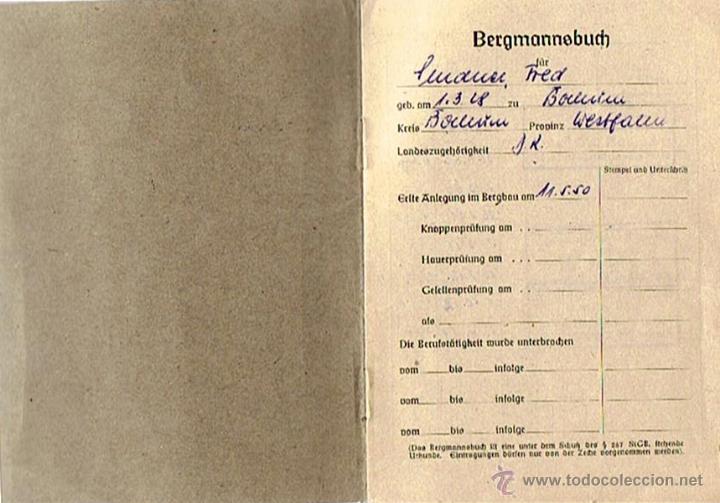 Bergmannsbuch
für
Fred
geb. am 1.3.28 zu Bochum
Kreis Bochum Provinz Westfalen
Landeszugehörigkeit
Stempel und Unterschrift
Erste Anlegung im Bergbau am 11.5.50
Knappenprüfung am . .
Hauerprüfung am . . .
Gesellenprüfung am . .
als
Die Berufstätigkeit wurde unterbrochen
vom bis infolge
vom bis infolge
vom bis infolge
(Das Bergmannsbuch ist eine unter dem Schutz des § 267 StGB. stehende
Urkunde. Eintragungen dürfen nur von der Zeche vorgenommen werden).
© www.todocoleccion.net